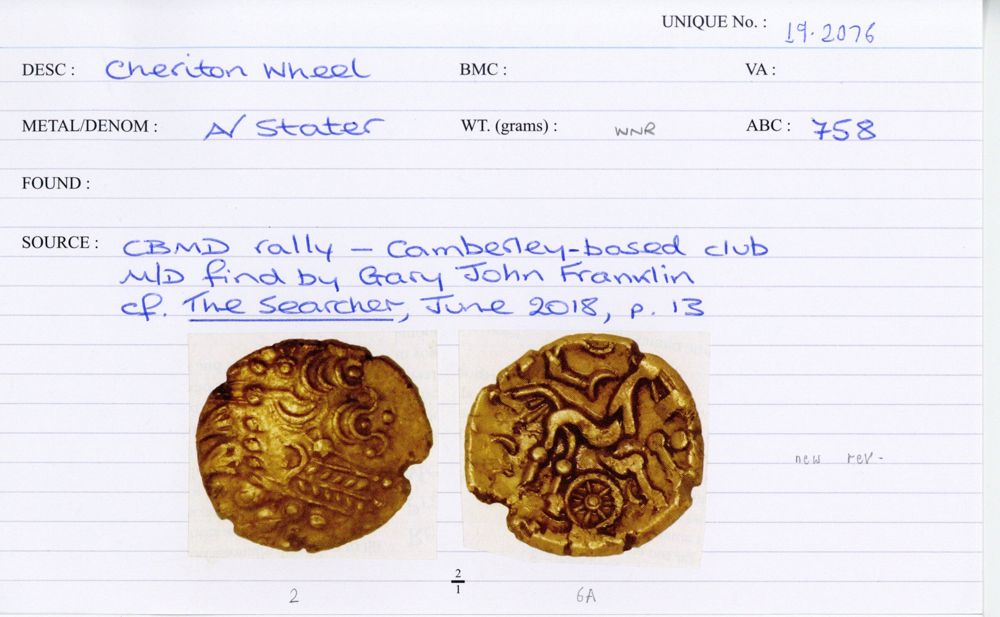 UNIQUE No. : 19.2076
DESC : Cheriton Wheel BMC : VA :
METAL/DENOM : A/ Stater WT. (grams) : WNR ABC : 758
FOUND :
SOURCE : CBMD rally – Camberley-based club
M/D find by Gary John Franklin
cf. The Searcher, June 2018, p. 13
new rev-
2/1
2 6A